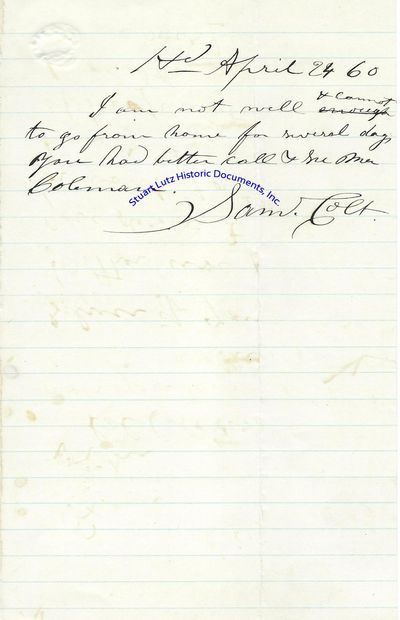 Hd April 24 60
I am not well & cannot enough
to go from home for several days
You had better call & see Mr
Coleman.
Saml. Colt.
Stuart Lutz Historic Documents, Inc.